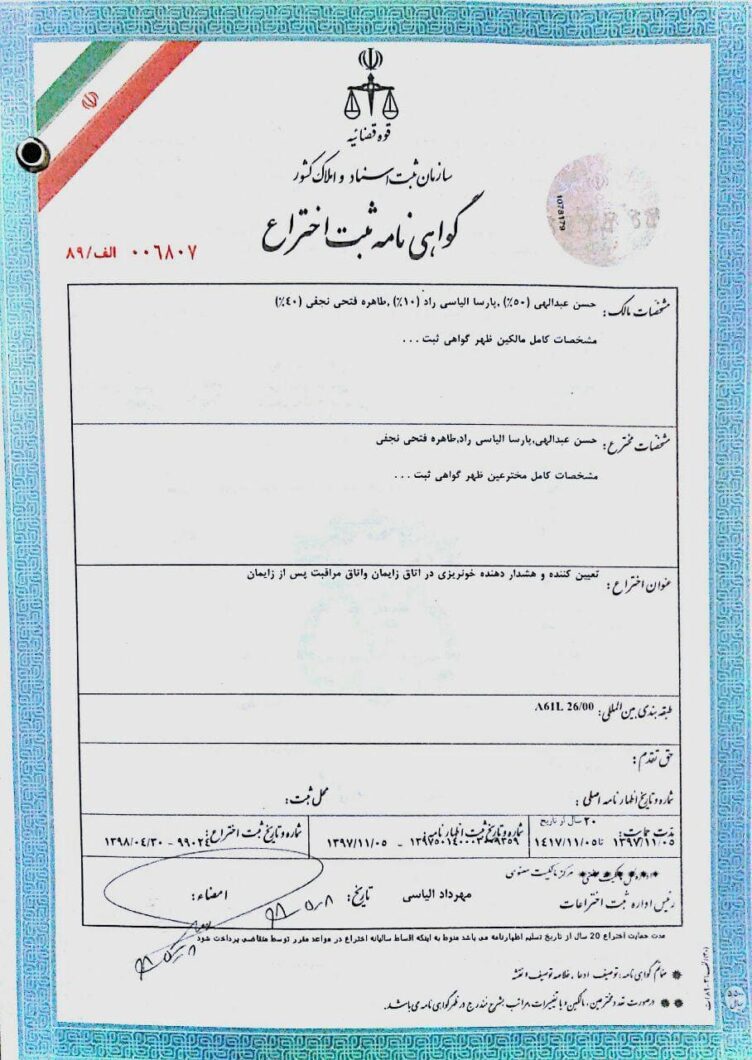 قوه قضائیه
سازمان ثبت اسناد و املاک کشور
گواهی نامه ثبت اختراع
1078179
۰۰۶۸۰۷ الف/۸۹
مشخصات مالک: حسن عبدالهی (۵۰٪) ,پارسا الیاسی راد (۱۰٪) ,طاهره فتحی نجفی (۴۰٪)
مشخصات کامل مالکین ظهر گواهی ثبت . . .
مشخصات مخترع: حسن عبدالهی,پارسا الیاسی راد,طاهره فتحی نجفی
مشخصات کامل مخترعین ظهر گواهی ثبت . . .
عنوان اختراع: تعیین کننده و هشدار دهنده خونریزی در اتاق زایمان واتاق مراقبت پس از زایمان
طبقه بندی بین المللی: A61L 26/00
حق تقدم:
شماره و تاریخ اظهارنامه اصلی: محل ثبت:
مدت حمایت: ۲۰ سال از تاریخ ۱۳۹۷/۱۱/۰۵ تا ۱۴۱۷/۱۱/۰۵
شماره و تاریخ ثبت اظهارنامه: ۱۳۹۷۵۰۱۴۰۰۰۳۰۰۹۳۵۹ - ۱۳۹۷/۱۱/۰۵
شماره و تاریخ ثبت اختراع: ۹۹۰۲۴ - ۱۳۹۸/۰۴/۳۰
مرکز مالکیت معنوی
رئیس اداره ثبت اختراعات مهرداد الیاسی تاریخ: ۹۸،۵،۸ امضاء:
مدت حمایت اختراع 20 سال از تاریخ تسلیم اظهارنامه می باشد منوط به اینکه اقساط سالیانه اختراع در مواعد مقرر توسط متقاضی پرداخت شود
* ضمائم گواهی نامه: توصیف، ادعا، خلاصه توصیف و نقشه
* * درصورت تعدد مخترعین، مالکین و یا تغییرات، مراتب بشرح مندرج در ظهر گواهی نامه می باشد.